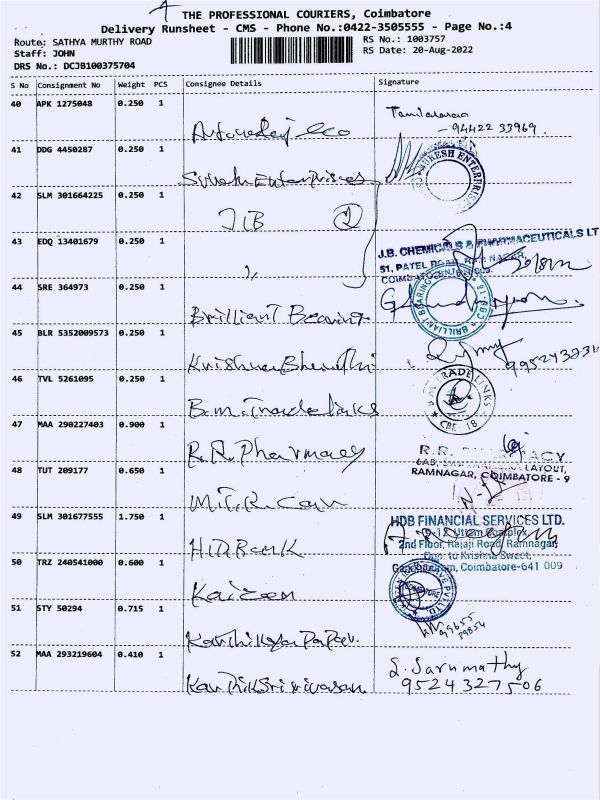 4
THE PROFESSIONAL COURIERS, Coimbatore
Delivery Runsheet - CMS - Phone No.:0422-3505555 - Page No.:4
Route: SATHYA MURTHY ROAD
RS No.: 1003757
Staff: JOHN
RS Date: 20-Aug-2022
DRS No.: DCJB100375704
S No Consignment No Weight PCS Consignee Details Signature
40 APK 1275048 0.250 1
- 94422 33969.
41 DDG 4450287 0.250 1
Enterprises
MUKESH ENTERPRISES
42 SLM 301664225 0.250 1
JB 2
43 EDQ 13401679 0.250 1
J.B. CHEMICALS & PHARMACEUTICALS LT
51, PATEL ROAD, RAM NAGAR,
44 SRE 364973 0.250 1
Brilliant Bearing
BRILLIANT BEARING
45 BLR 5352009573 0.250 1
Krishna Bhendhi
46 TVL 5261095 0.250 1
B.M. Trade links
B.M. TRADE LINKS
CBE - 18
47 MAA 290227403 0.900 1
R.R. Pharmacy
R.R. PHARMACY
LAYOUT,
RAMNAGAR, COIMBATORE - 9
48 TUT 209177 0.650 1
M.T.R. Can
49 SLM 301677555 1.750 1
HDBank
HDB FINANCIAL SERVICES LTD.
9-12 Uttam Complex
2nd Floor, Rajaji Road, Ramnagar,
Opp. to Krishna Sweet,
Coimbatore-641 009
50 TRZ 240541000 0.600 1
Kaizen
51 STY 50294 0.715 1
Karthikeya Paper
99655
89854
52 MAA 293219604 0.410 1
Karthik Srinivasan
S. Sarumathy
95243 27506